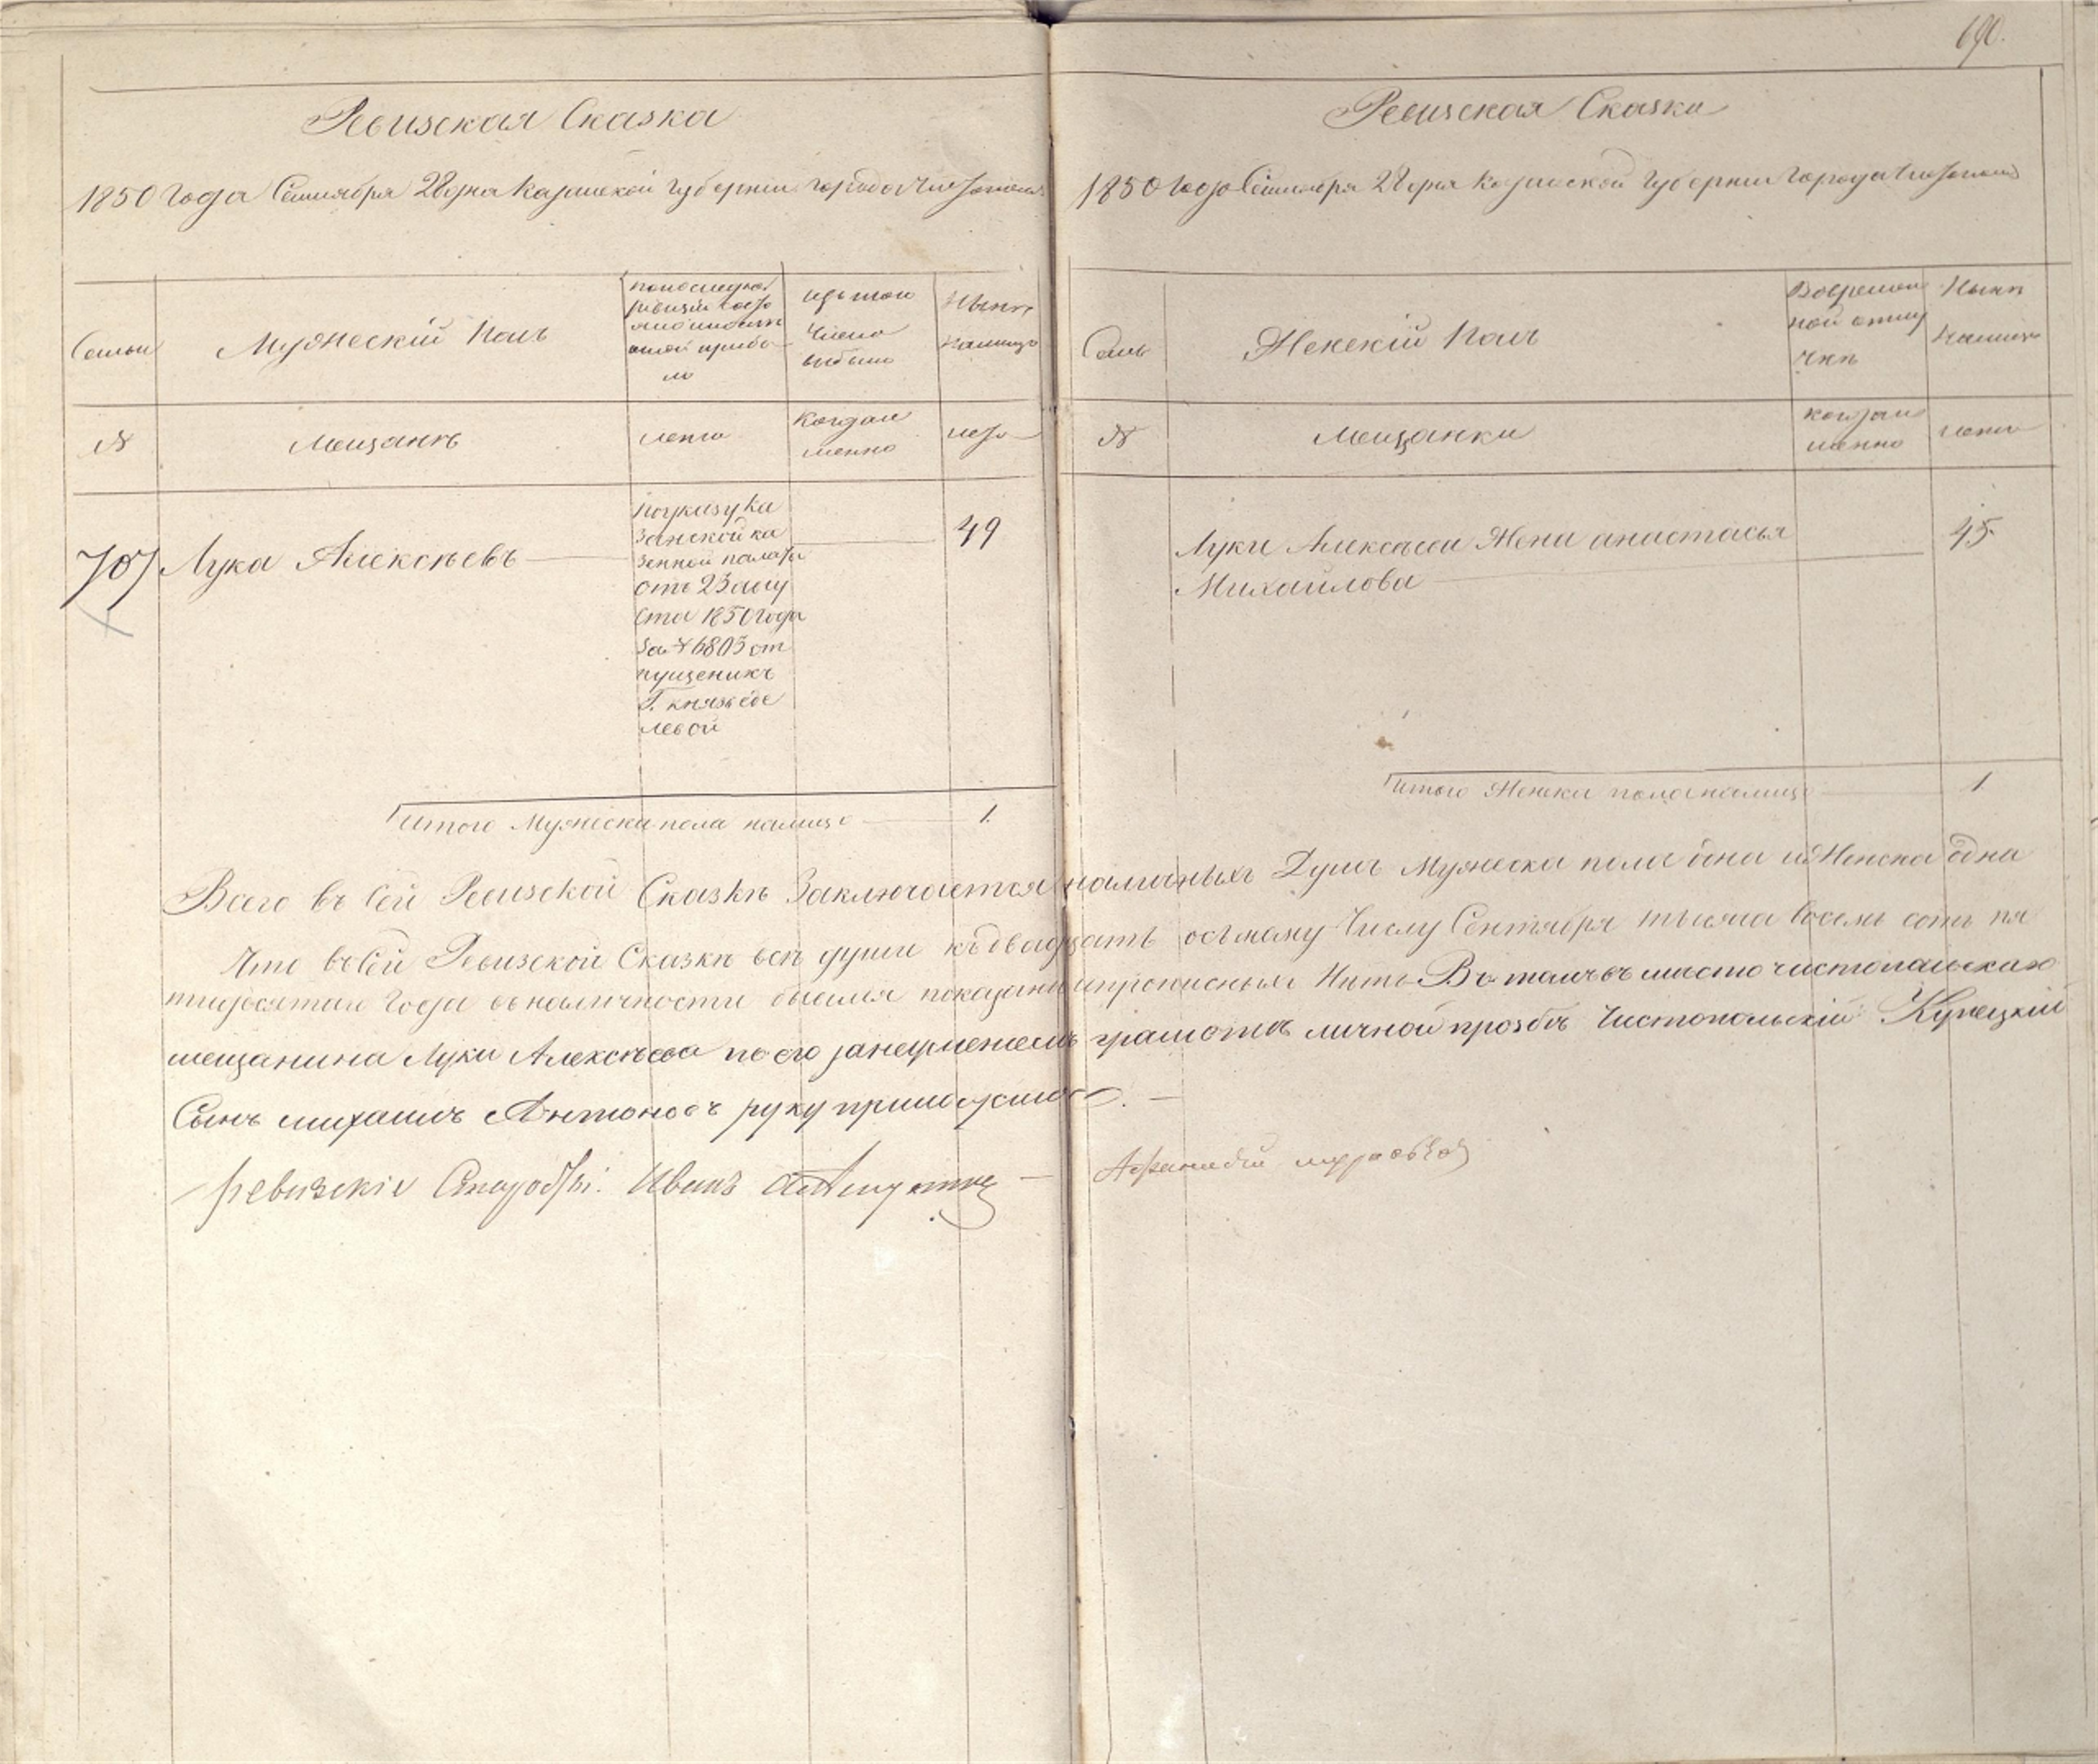 690.
Ревизская Сказка
1850 Года Сентября 28 дня Казанской Губернии Города Чистополя
Семьи
Мужеской Полъ
По последней
ревизии состо
яло и после
оной прибы
ло
Изъ того
числа
выбыло
Ныне
налицо
№
Мещане
лета
Когда и
менно
лета
707
Лука Алексеевъ
49
По указу Ка
занской ка
зенной палаты
отъ 23 авгу
ста 1850 года
за № 6803 от
пущеникъ
Г. князь
левой
Итого Мужеска пола налицо
1.
Ревизская Сказка
1850 Года Сентября 28 дня Казанской Губернии Города Чистополя
Семьи
Женский Полъ
Во времен
ной отлу
чке
Ныне
налицо
№
Мещанки
когда и
менно
лета
Луки Алексеева Жена анастасья
Михайлова
45.
Итого Женска пола налицо
1
Всего въ Сей Ревизской Сказкъ Заключается наличныхъ Душъ Мужеска пола одна и Женска одна
Что въ Сей Ревизской Сказкъ всъ души къ двадцать осьмому Числу Сентября тысяча восемь сотъ пя
тидесятаго Года въ наличности бывшия показаны и прописныхъ Нътъ Въ томъ въ мъсто чистопольскаго
мещанина Луки Алексъева по его занеумениемъ грамотъ личной прозбъ Чистопольский Купецкий
Сынъ михаилъ Антоновъ руку приложилъ. —
Ревизские Старосты: Иванъ
Афанасий